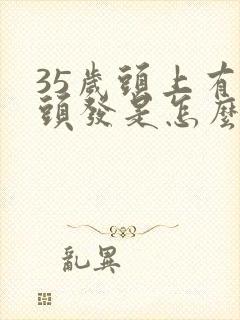 35歲頭上有
頭發是怎麼
亂異